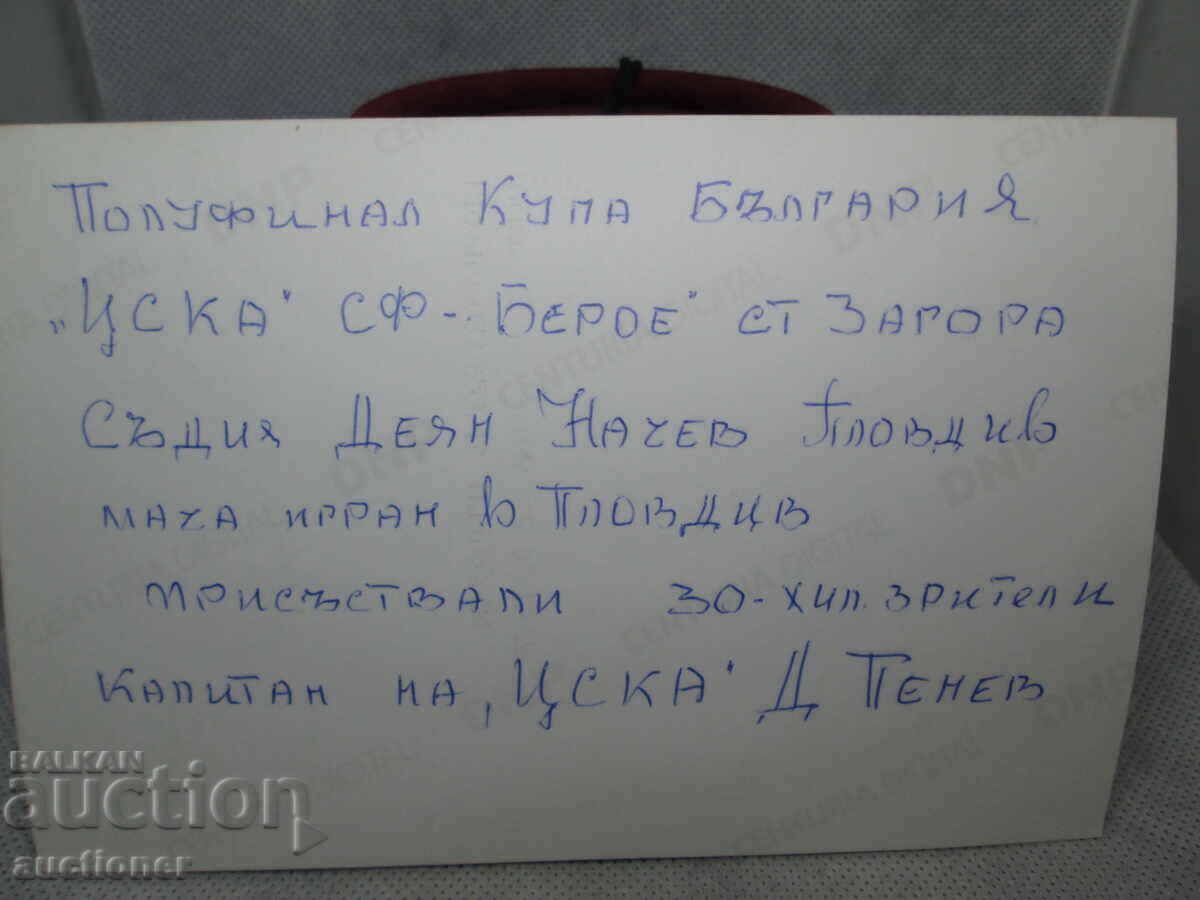 Полуфинал Купа България
„ЦСКА" СФ - Берое" СТ Загора
Съдия Деян Начев Пловдив
мача игран в Пловдив
присъствали 30-хил. зрители
капитан на „ЦСКА" Д Пенев
BALKAN
auction
auctioner
CENTURIA DIGITAL
DNP